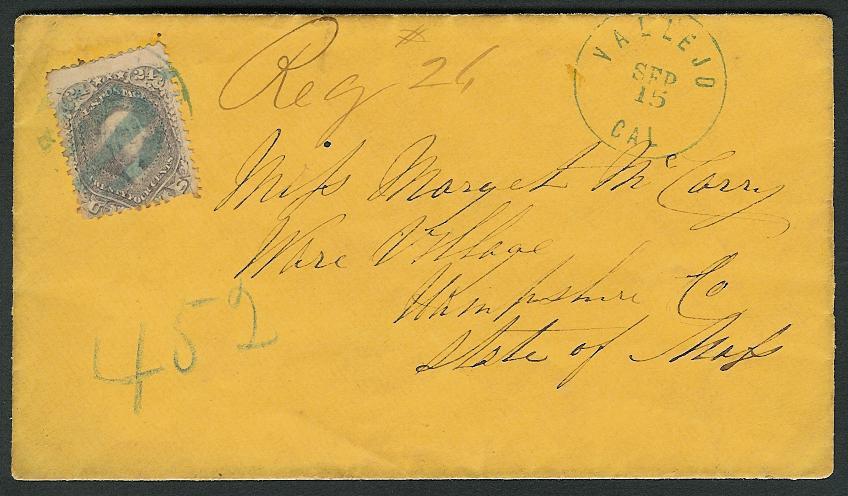 24 24
U.S. POSTAGE
TWENTY FOUR CENTS
U S
Reg # 26
VALLEJO
SEP
15
CAL
Miss Marget McCarry
Ware Village
Hampshire Co
State of Mass
452